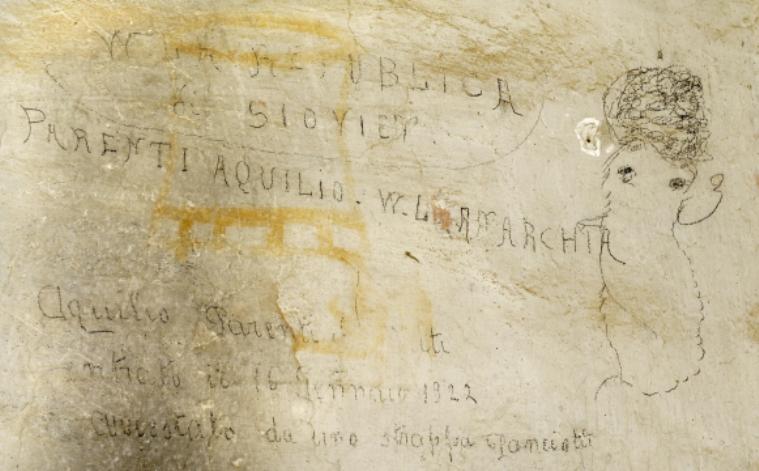 W LA REPUBLICA
di SIOVIET.
PARENTI AQUILIO. W. L'ANARCHIA
Aquilio Parenti
il 16 Gennaio 1922
Arrestato da uno strappa